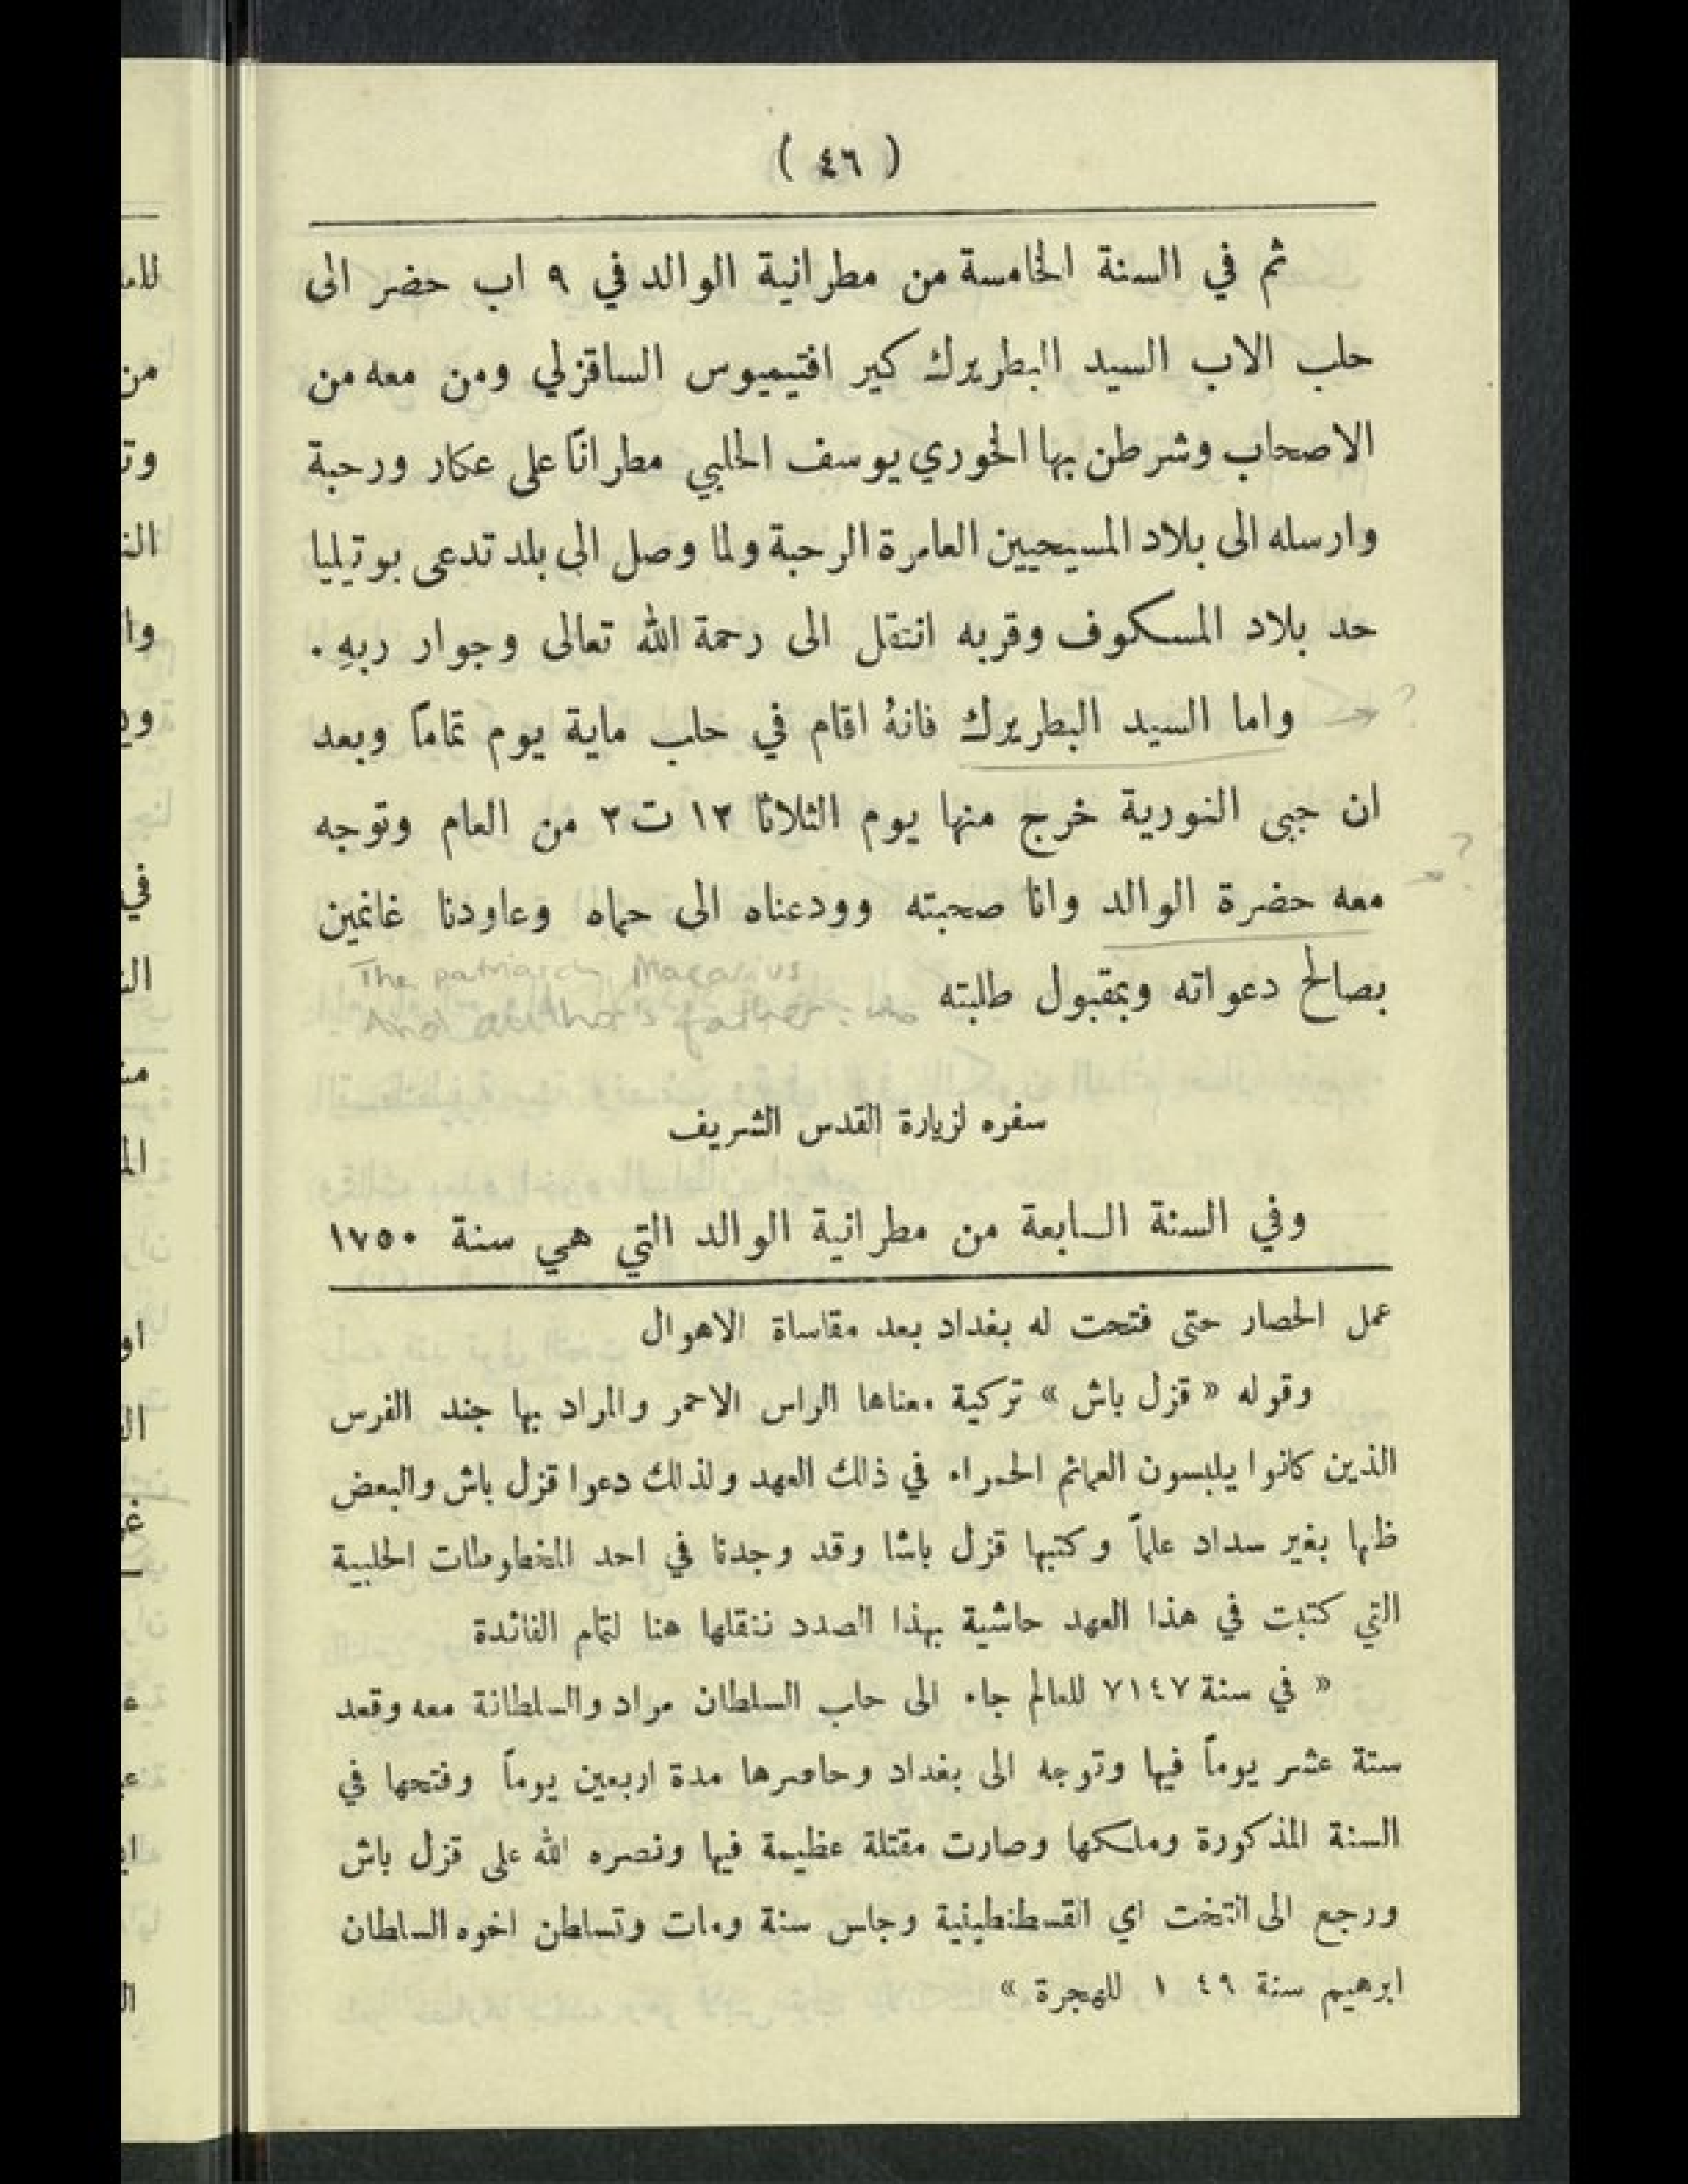 ( ٤٦ )
ثم في السنة الخامسة من مطرانية الوالد في ٩ اب حضر الى
حلب الاب السيد البطريرك كير افتيميوس الساقزلي ومن معه من
الاصحاب وشرطن بها الخوري يوسف الحلبي مطرانًا على عكار ورحبة
وارسله الى بلاد المسيحيين العامرة الرحبة ولما وصل الى بلد تدعى بوتيليا
حد بلاد المسكوف وقربه انتقل الى رحمة الله تعالى وجوار ربهِ .
واما السيد البطريرك فانهُ اقام في حلب ماية يوم تمامًا وبعد
ان جبى النورية خرج منها يوم الثلاثا ١٢ ت٢ من العام وتوجه
معه حضرة الوالد وانا صحبته وودعناه الى حماه وعاودنا غانمين
بصالح دعواته وبمقبول طلبته
The patriarch Macarius
And author's father:
سفره لزيارة القدس الشريف
وفي السنة السابعة من مطرانية الوالد التي هي سنة ١٧٥٠
عمل الحصار حتى فتحت له بغداد بعد مقاساة الاهوال
وقوله « قزل باش » تركية معناها الراس الاحمر والمراد بها جند الفرس
الذين كانوا يلبسون العمائم الحمراء في ذلك العهد ولذلك دعوا قزل باش والبعض
ظنها بغير سداد علمًا وكتبها قزل باشا وقد وجدنا في احد المخطوطات الحلبية
التي كتبت في هذا العهد حاشية بهذا الصدد ننقلها هنا لتمام الفائدة
« في سنة ٧١٤٧ للعالم جاء الى حاب السلطان مراد والسلطانة معه وقعد
ستة عشر يومًا فيها وتوجه الى بغداد وحاصرها مدة اربعين يومًا وفتحها في
السنة المذكورة وملكها وصارت مقتلة عظيمة فيها ونصره الله على قزل باش
ورجع الى التخت اي القسطنطينية وجاس سنة ومات وتساطن اخوه السلطان
ابرهيم سنة ٤٩ ١ للهجرة »